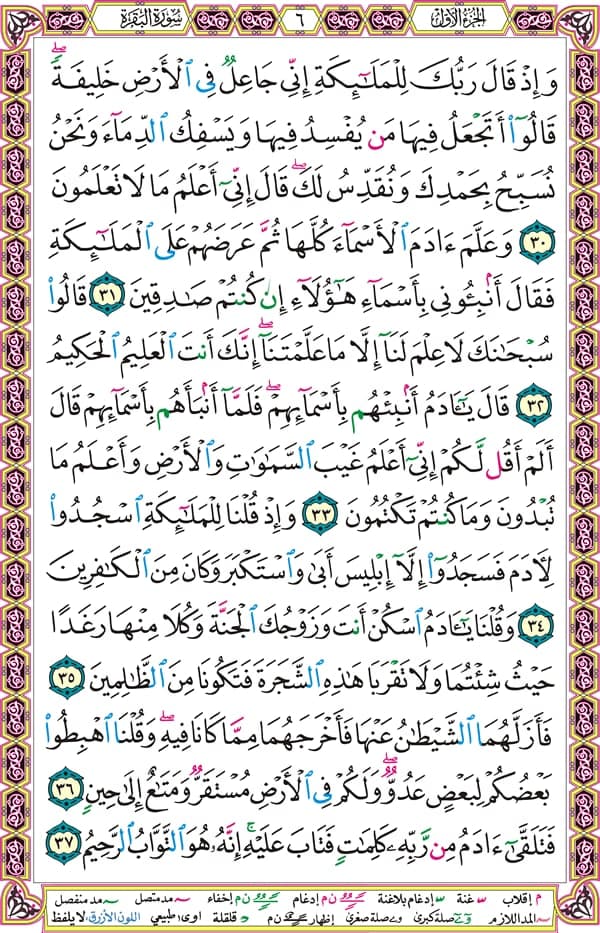 الجزء الأول
٦
سورة البقرة
وَإِذْ قَالَ رَبُّكَ لِلْمَلَٰٓئِكَةِ إِنِّي جَاعِلٌ فِي ٱلْأَرْضِ خَلِيفَةًۖ
قَالُوٓا۟ أَتَجْعَلُ فِيهَا مَن يُفْسِدُ فِيهَا وَيَسْفِكُ ٱلدِّمَآءَ وَنَحْنُ
نُسَبِّحُ بِحَمْدِكَ وَنُقَدِّسُ لَكَۖ قَالَ إِنِّيٓ أَعْلَمُ مَا لَا تَعْلَمُونَ
٣٠ وَعَلَّمَ ءَادَمَ ٱلْأَسْمَآءَ كُلَّهَا ثُمَّ عَرَضَهُمْ عَلَى ٱلْمَلَٰٓئِكَةِ
فَقَالَ أَنۢبِـُٔونِي بِأَسْمَآءِ هَٰٓؤُلَآءِ إِن كُنتُمْ صَٰدِقِينَ ٣١ قَالُوا۟
سُبْحَٰنَكَ لَا عِلْمَ لَنَآ إِلَّا مَا عَلَّمْتَنَآۖ إِنَّكَ أَنتَ ٱلْعَلِيمُ ٱلْحَكِيمُ
٣٢ قَالَ يَٰٓـَٔادَمُ أَنۢبِئْهُم بِأَسْمَآئِهِمْۖ فَلَمَّآ أَنۢبَأَهُم بِأَسْمَآئِهِمْ قَالَ
أَلَمْ أَقُل لَّكُمْ إِنِّيٓ أَعْلَمُ غَيْبَ ٱلسَّمَٰوَٰتِ وَٱلْأَرْضِ وَأَعْلَمُ مَا
تُبْدُونَ وَمَا كُنتُمْ تَكْتُمُونَ ٣٣ وَإِذْ قُلْنَا لِلْمَلَٰٓئِكَةِ ٱسْجُدُوا۟
لِـَٔادَمَ فَسَجَدُوٓا۟ إِلَّآ إِبْلِيسَ أَبَىٰ وَٱسْتَكْبَرَ وَكَانَ مِنَ ٱلْكَٰفِرِينَ
٣٤ وَقُلْنَا يَٰٓـَٔادَمُ ٱسْكُنْ أَنتَ وَزَوْجُكَ ٱلْجَنَّةَ وَكُلَا مِنْهَا رَغَدًا
حَيْثُ شِئْتُمَا وَلَا تَقْرَبَا هَٰذِهِ ٱلشَّجَرَةَ فَتَكُونَا مِنَ ٱلظَّٰلِمِينَ ٣٥
فَأَزَلَّهُمَا ٱلشَّيْطَٰنُ عَنْهَا فَأَخْرَجَهُمَا مِمَّا كَانَا فِيهِۖ وَقُلْنَا ٱهْبِطُوا۟
بَعْضُكُمْ لِبَعْضٍ عَدُوٌّۖ وَلَكُمْ فِي ٱلْأَرْضِ مُسْتَقَرٌّ وَمَتَٰعٌ إِلَىٰ حِينٍ ٣٦
فَتَلَقَّىٰٓ ءَادَمُ مِن رَّبِّهِۦ كَلِمَٰتٍ فَتَابَ عَلَيْهِۚ إِنَّهُۥ هُوَ ٱلتَّوَّابُ ٱلرَّحِيمُ ٣٧
م إقلاب غنة إدغام بلاغنة ن م إدغام ن م إخفاء مد متصل مد منفصل
المد اللازم صلة كبرى صلة صغرى إظهار ن م قلقلة اوى طبيعي اللون الأزرق: لا يلفظ